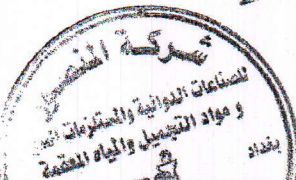 شركة المنصور
للصناعات الدوائية والمستلزمات
و مواد التجميل والمياه المعقمة
بغداد